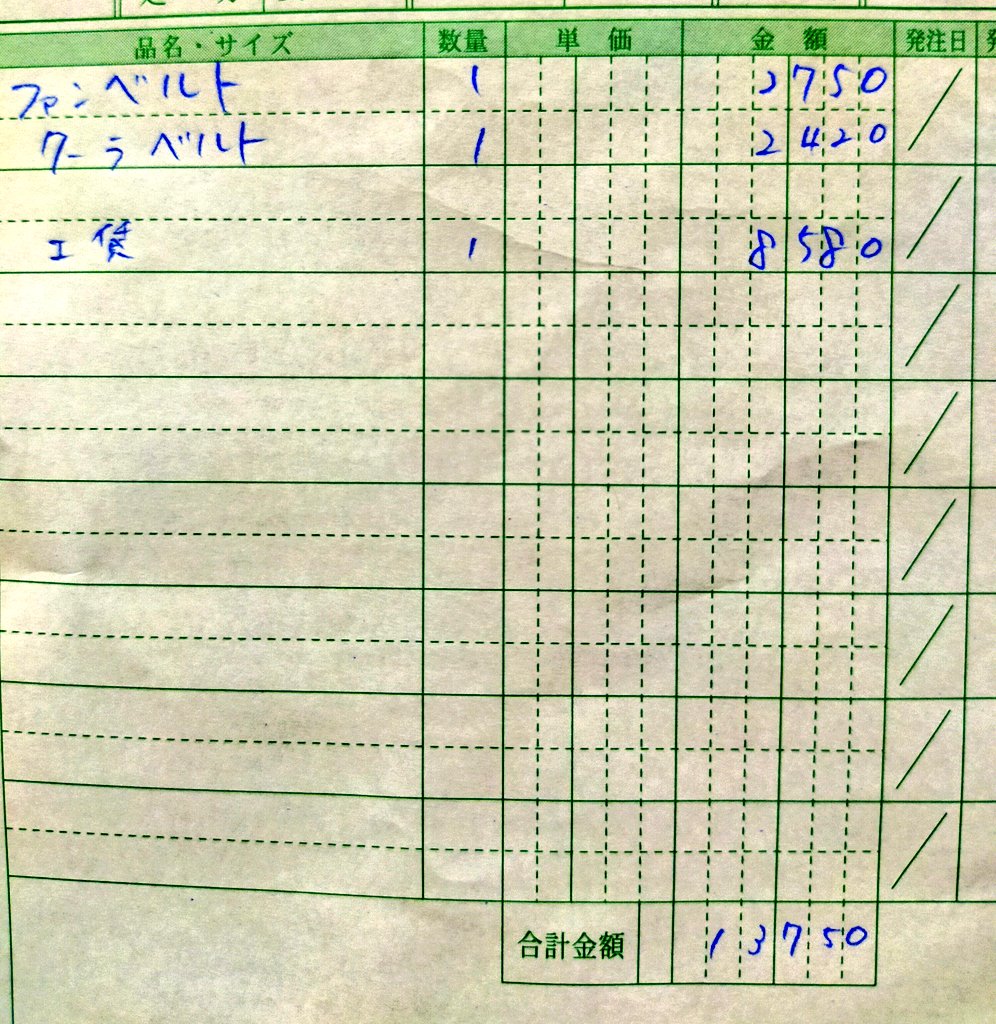 品名・サイズ 数量 単価 金額 発注日
ファンベルト 1 2750
クーラベルト 1 2420
工賃 1 8580
合計金額 13750